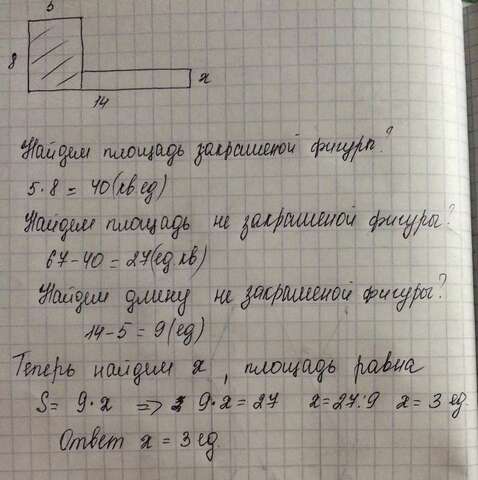 5
8
x
14
Найдем площадь закрашеной фигуры?
5·8 = 40(кв ед)
Найдем площадь не закрашеной фигуры?
67-40 = 27(ед кв)
Найдем длину не закрашеной фигуры?
14-5 = 9(ед)
Теперь найдем x, площадь равна
S= 9·x => 9·x = 27 x=27:9 x = 3 ед.
Ответ x = 3 ед.